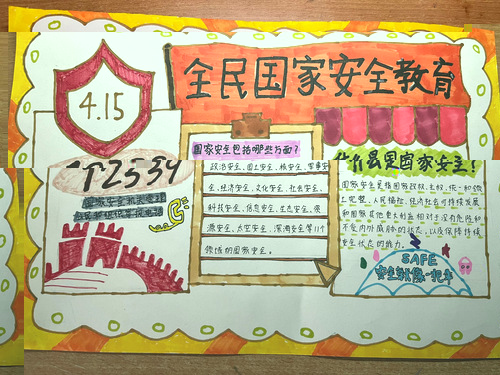 全民国家安全教育
4.15
国家安全包括哪些方面?
政治安全、国土安全、核安全、军事安
全、经济安全、文化安全、社会安全、
科技安全、信息安全、生态安全、资
源安全、太空安全、深海安全等11个
领域的国家安全。
什么是国家安全?
国家安全是指国家政权、主权、统一和领
土完整、人民福祉、经济社会可持续发展
和国家其他重大利益相对处于没有危险和
不受内外威胁的状态,以及保障持续
安全状态的能力。
SAFE
安全就像一把伞